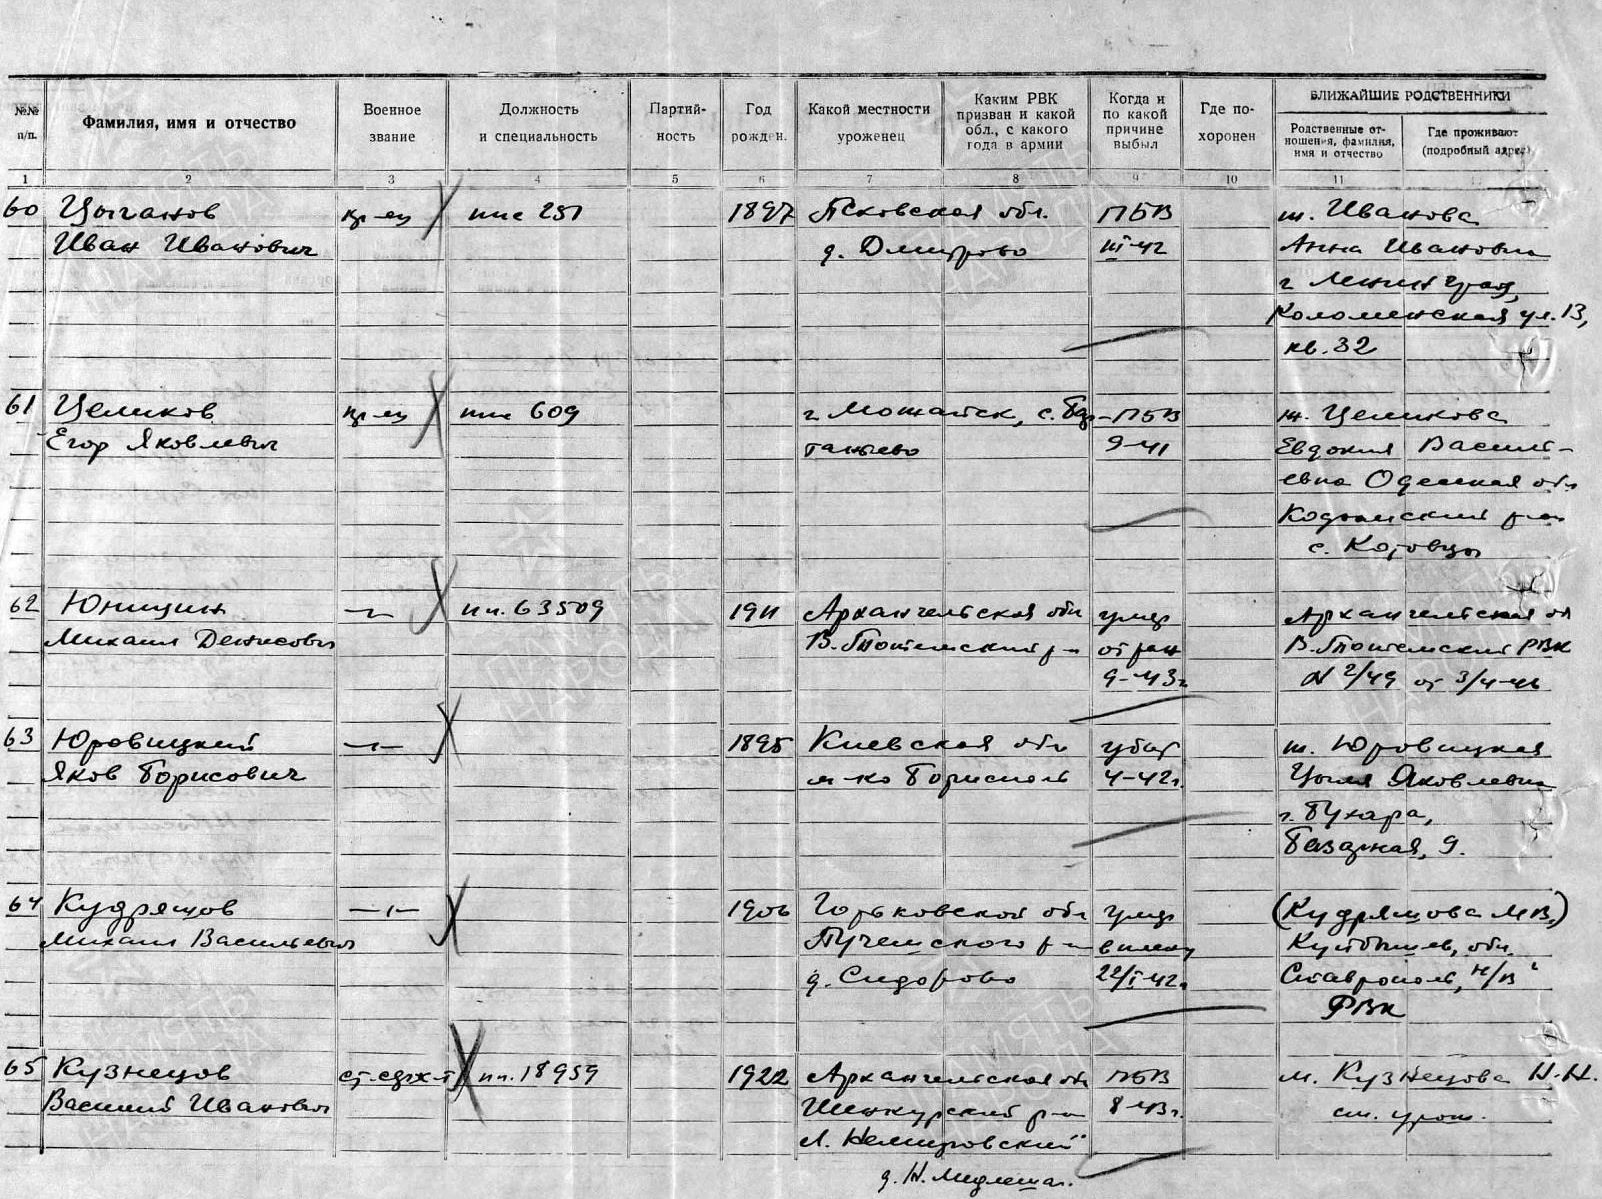 №№ п/п.
Фамилия, имя и отчество
Военное звание
Должность и специальность
Партий-ность
Год рожден.
Какой местности уроженец
Каким РВК призван и какой обл., с какого года в армии
Когда и по какой причине выбыл
Где по-хоронен
БЛИЖАЙШИЕ РОДСТВЕННИКИ
Родственные от-ношения, фамилия, имя и отчество
Где проживают (подробный адрес)
1 2 3 4 5 6 7 8 9 10 11
60 Цыганов кр-ец ппс 251 1897 Псковская обл. ПБВ ж. Иванова
Иван Иванович д. Дмитрово III-42 Анна Ивановна
г. Ленинград,
Коломенская ул. 13,
кв. 32
61 Целиков кр-ец ппс 609 г. Можайск, с. ПБВ ж. Целикова
Егор Яковлевич 9-41 Евдокия Василь-
евна Одесская обл
Кодымский р-он
с. Котовцы
62 Юницин пп. 63509 1911 Архангельская обл умер Архангельская обл
Михаил Денисович В. Тоемский р-н от ран В. Тоемский РВК
9-43г № 2/49 от 3/4-46
63 Юровицкий —"— 1895 Киевская обл убит ж. Юровицкая
Яков Борисович м-ко Борисполь 4-42г. Цыля Яковлевна
г. Бухара,
Базарная, 9.
64 Кудряшов —"— 1906 Горьковской обл умер (Кудряшова М.В.)
Михаил Васильевич р-н в плену Куйбышев. обл.
д. Сидорово 22/I-42г Ставрополь, н/В
РВК
65 Кузнецов ст. серж-т пп. 18959 1922 Архангельская обл ПБВ м. Кузнецова Н.Н.
Василий Иванович Шенкурский р-н 8-43г. см. урож.
Л. Немировский
д. Н.